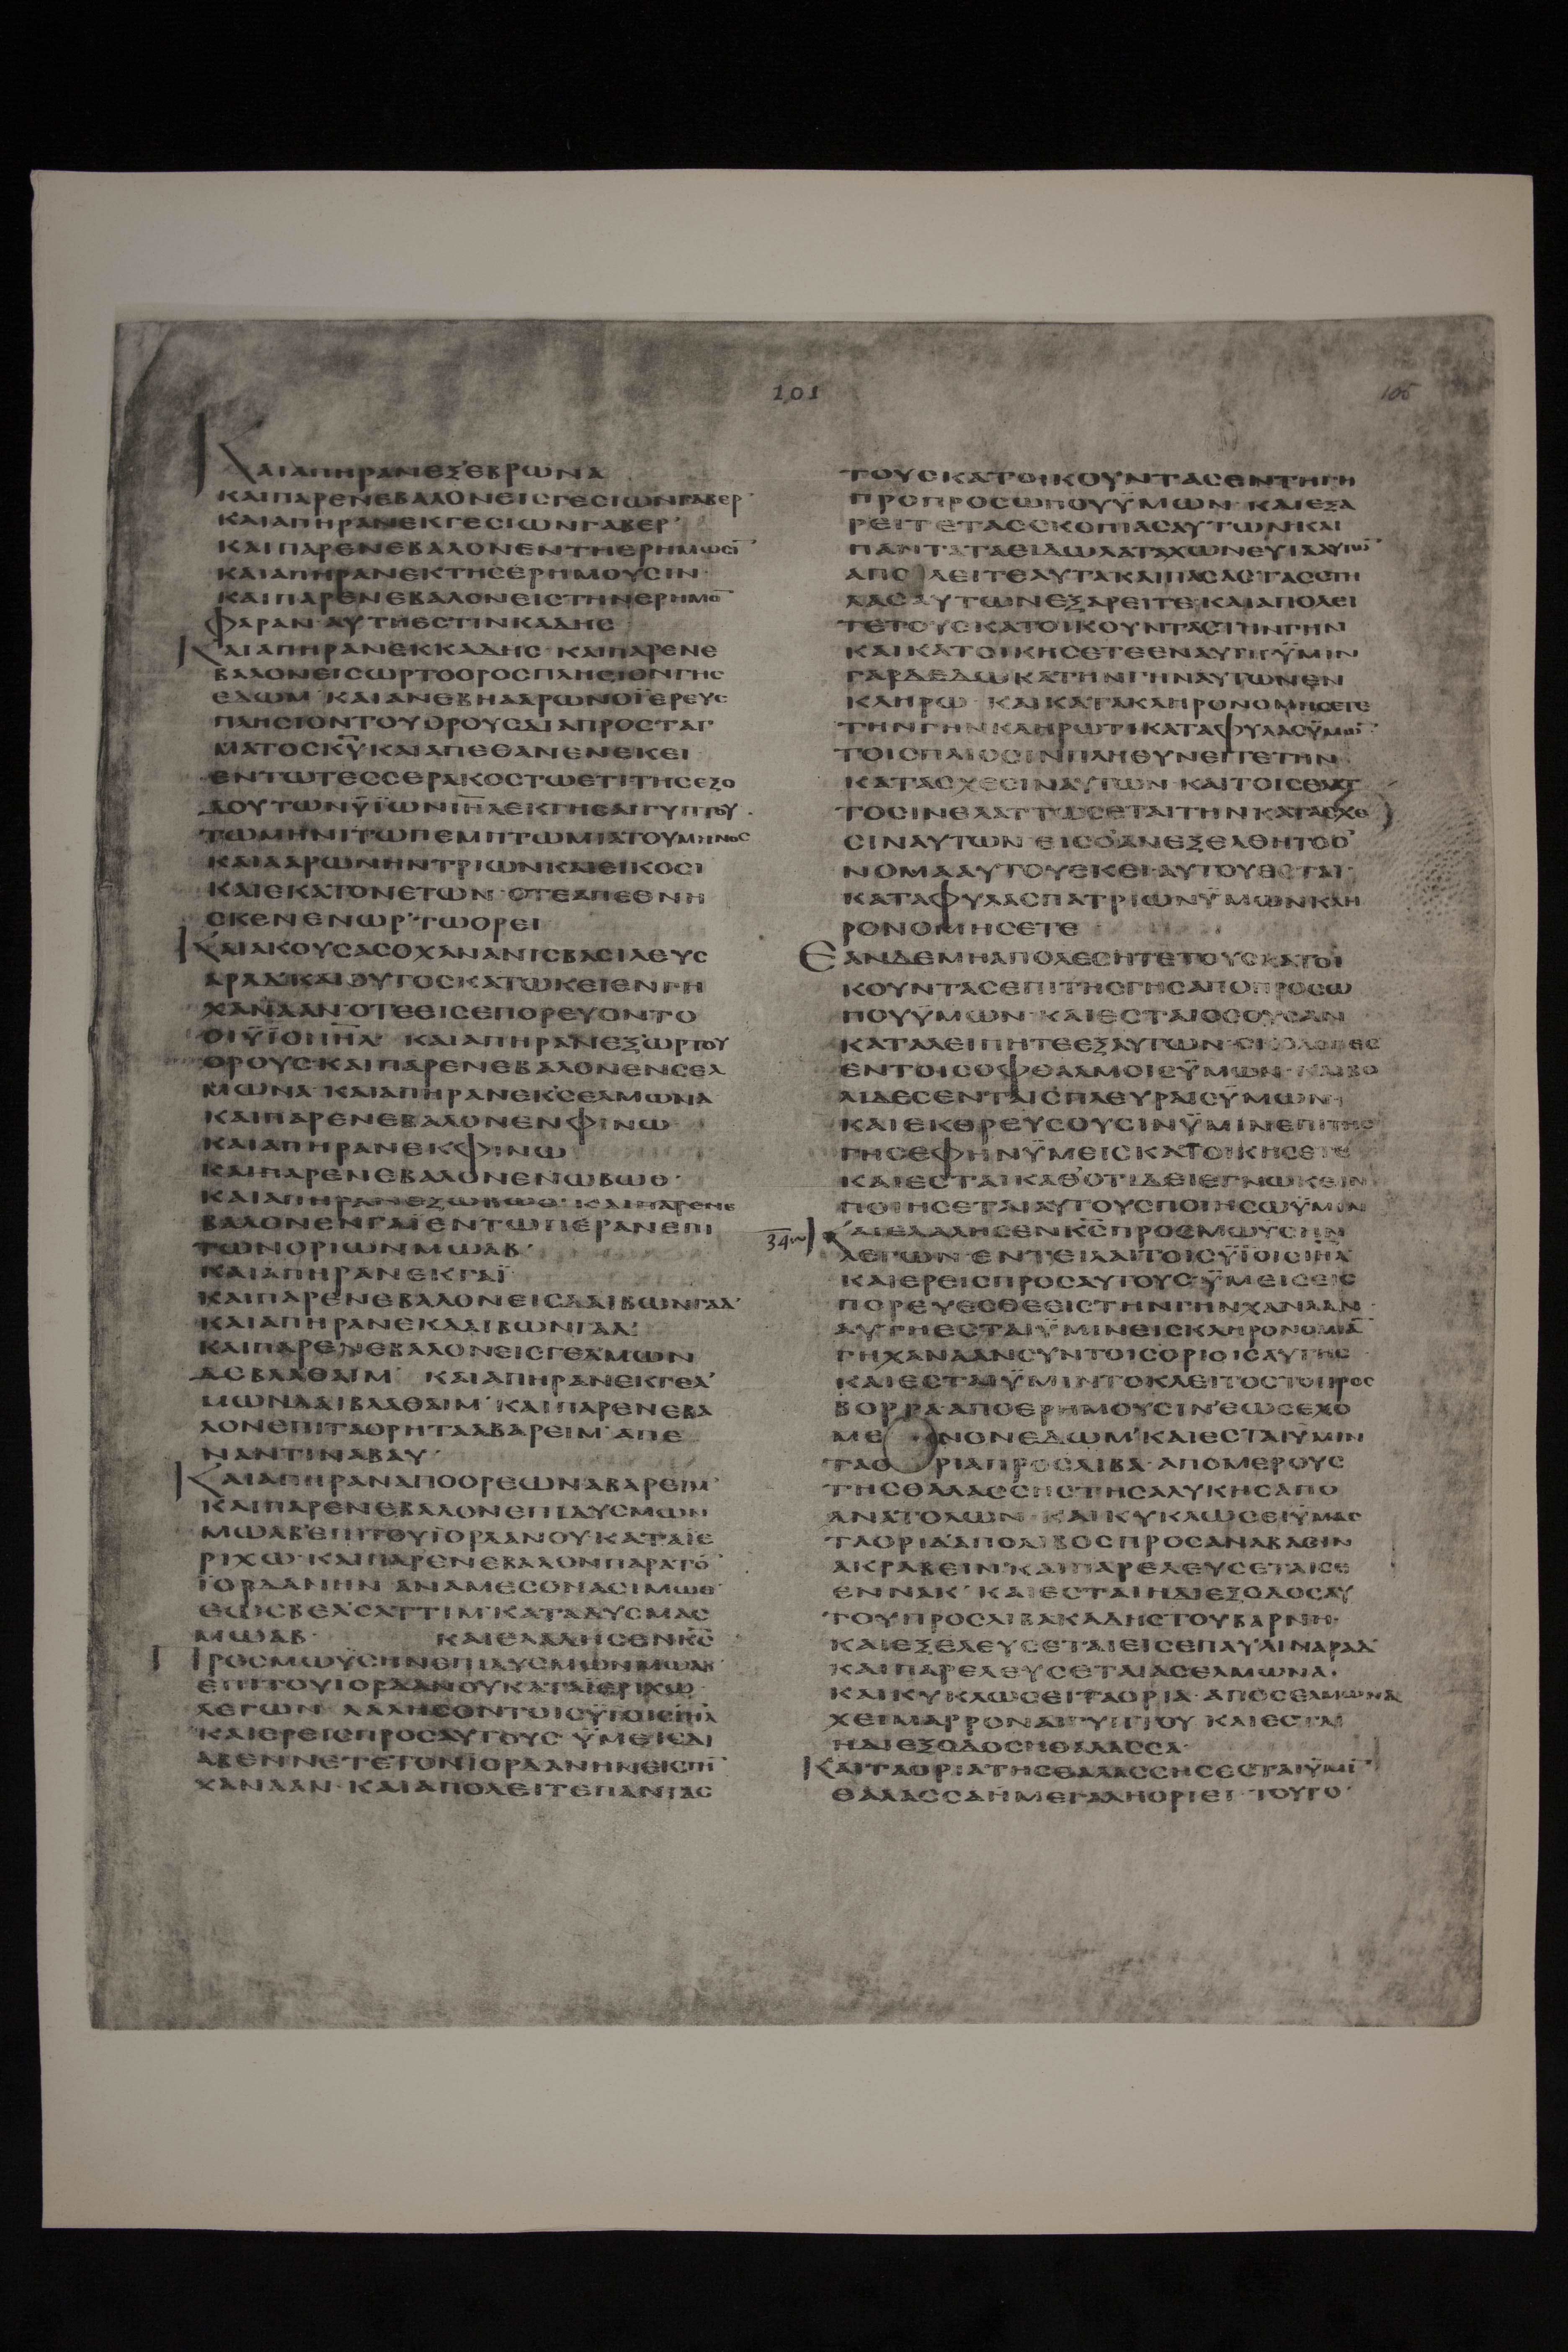 101
105
ΚΑΙΑΠΗΡΑΝΕΞΕΒΡΩΝΑ
ΚΑΙΠΑΡΕΝΕΒΑΛΟΝΕΙΣΓΕΣΙΩΝΓΑΒΕΡ·
ΚΑΙΑΠΗΡΑΝΕΚΓΕΣΙΩΝΓΑΒΕΡ·
ΚΑΙΠΑΡΕΝΕΒΑΛΟΝΕΝΤΗΕΡΗΜΩΣΙ̅
ΚΑΙΑΠΗΡΑΝΕΚΤΗΣΕΡΗΜΟΥΣΙΝ·
ΚΑΙΠΑΡΕΝΕΒΑΛΟΝΕΙΣΤΗΝΕΡΗΜΟ̅
ΦΑΡΑΝ·ΑΥΤΗΕΣΤΙΝΚΑΔΗΣ
ΚΑΙΑΠΗΡΑΝΕΚΚΑΔΗΣ·ΚΑΙΠΑΡΕΝΕ
ΒΑΛΟΝΕΙΣΩΡΤΟΟΡΟΣΠΛΗΣΙΟΝΓΗΣ
ΕΔΩΜ·ΚΑΙΑΝΕΒΗΑΑΡΩΝΟΪΕΡΕΥΣ
ΠΛΗΣΙΟΝΤΟΥΟΡΟΥΣΔΙΑΠΡΟΣΤΑΓ
ΜΑΤΟΣΚ̅Υ̅ΚΑΙΑΠΕΘΑΝΕΝΕΚΕΙ
ΕΝΤΩΤΕΣΣΕΡΑΚΟΣΤΩΕΤΙΤΗΣΕΞΟ
ΔΟΥΤΩΝΫΪΩΝΙ̅Η̅Λ̅ΕΚΓΗΣΑΙΓΥΠΤΟΥ·
ΤΩΜΗΝΙΤΩΠΕΜΠΤΩΜΙΑΤΟΥΜΗΝΟΣ
ΚΑΙΑΑΡΩΝΗΝΤΡΙΩΝΚΑΙΕΙΚΟΣΙ
ΚΑΙΕΚΑΤΟΝΕΤΩΝ·ΟΤΕΑΠΕΘΝΗ
ΣΚΕΝΕΝΩΡ·ΤΩΟΡΕΙ
ΚΑΙΑΚΟΥΣΑΣΟΧΑΝΑΝΙΣΒΑΣΙΛΕΥΣ
ΑΡΑΔ·ΚΑΙΟΥΤΟΣΚΑΤΩΚΕΙΕΝΓΗ
ΧΑΝΑΑΝ·ΟΤΕΕΙΣΕΠΟΡΕΥΟΝΤΟ
ΟΙΫΙΟΙΙ̅Η̅Λ̅·ΚΑΙΑΠΗΡΑΝΕΞΩΡΤΟΥ
ΟΡΟΥΣΚΑΙΠΑΡΕΝΕΒΑΛΟΝΕΝΣΕΛ
ΜΩΝΑ·ΚΑΙΑΠΗΡΑΝΕΚΣΕΛΜΩΝΑ
ΚΑΙΠΑΡΕΝΕΒΑΛΟΝΕΝΦΙΝΩ
ΚΑΙΑΠΗΡΑΝΕΚΦΙΝΩ
ΚΑΙΠΑΡΕΝΕΒΑΛΟΝΕΝΩΒΩΘ·
ΚΑΙΑΠΗΡΑΝΕΞΩΒΩΘ·ΚΑΙΠΑΡΕΝΕ
ΒΑΛΟΝΕΝΓΑΪΕΝΤΩΠΕΡΑΝΕΠΙ
ΤΩΝΟΡΙΩΝΜΩΑΒ·
ΚΑΙΑΠΗΡΑΝΕΚΓΑΪ
ΚΑΙΠΑΡΕΝΕΒΑΛΟΝΕΙΣΔΑΙΒΩΝΓΑΔ·
ΚΑΙΑΠΗΡΑΝΕΚΔΑΙΒΩΝΓΑΔ·
ΚΑΙΠΑΡΕΝΕΒΑΛΟΝΕΙΣΓΕΛΜΩΝ
ΔΕΒΛΑΘΑΙΜ·ΚΑΙΑΠΗΡΑΝΕΚΓΕΛ
ΜΩΝΔΑΙΒΛΑΘΑΙΜ·ΚΑΙΠΑΡΕΝΕΒΑ
ΛΟΝΕΠΙΤΑΟΡΗΤΑΑΒΑΡΕΙΜ·ΑΠΕ
ΝΑΝΤΙΝΑΒΑΥ·
ΚΑΙΑΠΗΡΑΝΑΠΟΟΡΕΩΝΑΒΑΡΕΙΜ·
ΚΑΙΠΑΡΕΝΕΒΑΛΟΝΕΠΙΔΥΣΜΩΝ
ΜΩΑΒ·ΕΠΙΤΟΥΙΟΡΔΑΝΟΥ·ΚΑΤΑΪΕ
ΡΙΧΩ·ΚΑΙΠΑΡΕΝΕΒΑΛΟΝΠΑΡΑΤΟ̅
ΪΟΡΔΑΝΗΝ·ΑΝΑΜΕΣΟΝΑΣΙΜΩΘ·
ΕΩΣΒΕΛΣΑΤΤΙΜ·ΚΑΤΑΔΥΣΜΑΣ
ΜΩΑΒ·ΚΑΙΕΛΑΛΗΣΕΝΚ̅Σ̅
ΠΡΟΣΜΩΥΣΗΝΕΠΙΔΥΣΜΩΝΜΩΑΒ·
ΕΠΙΤΟΥΙΟΡΔΑΝΟΥΚΑΤΑΪΕΡΙΧΩ
ΛΕΓΩΝ·ΛΑΛΗΣΟΝΤΟΙΣΫΙΟΙΣΙ̅Η̅Λ̅
ΚΑΙΕΡΕΙΣΠΡΟΣΑΥΤΟΥΣ·ΫΜΕΙΣΔΙ
ΑΒΕΝΝΕΤΕΤΟΝΪΟΡΔΑΝΗΝΕΙΣΓΗ̅
ΧΑΝΑΑΝ·ΚΑΙΑΠΟΛΕΙΤΕΠΑΝΤΑΣ
ΤΟΥΣΚΑΤΟΙΚΟΥΝΤΑΣΕΝΤΗΓΗ
ΠΡΟΠΡΟΣΩΠΟΥΫΜΩΝ·ΚΑΙΕΞΑ
ΡΕΙΤΕΤΑΣΣΚΟΠΙΑΣΑΥΤΩΝΚΑΙ
ΑΠΟΛΕΙΤΕΑΥΤΑΚΑΙΠΑΣΑΣΤΑΣΣΤΗ
ΛΑΣΑΥΤΩΝΕΞΑΡΕΙΤΕ·ΚΑΙΑΠΟΛΕΙ
ΤΕΤΟΥΣΚΑΤΟΙΚΟΥΝΤΑΣΤΗΝΓΗΝ
ΚΑΙΚΑΤΟΙΚΗΣΕΤΕΕΝΑΥΤΗΫΜΙΝ
ΓΑΡΔΕΔΩΚΑΤΗΝΓΗΝΑΥΤΩΝΕΝ
ΚΛΗΡΩ·ΚΑΙΚΑΤΑΚΛΗΡΟΝΟΜΗΣΕΤΕ
ΤΟΙΣΠΛΙΟΣΙΝΠΛΗΘΥΝΕΙΤΕΤΗΝ
ΚΑΤΑΣΧΕΣΙΝΑΥΤΩΝ·ΚΑΙΤΟΙΣΕΛΑΤ
ΤΟΣΙΝΕΛΑΤΤΩΣΕΤΑΙΤΗΝΚΑΤΑΣΧΕ
ΣΙΝΑΥΤΩΝ·ΕΙΣΟΑΝΕΞΕΛΘΗΤΟΟ
ΝΟΜΑΑΥΤΟΥΕΚΕΙ·ΑΥΤΟΥΕΣΤΑΙ·
ΚΑΤΑΦΥΛΑΣΠΑΤΡΙΩΝΫΜΩΝΚΛΗ
ΡΟΝΟΜΗΣΕΤΕ
ΕΑΝΔΕΜΗΑΠΟΛΕΣΗΤΕΤΟΥΣΚΑΤΟΙ
ΚΟΥΝΤΑΣΕΠΙΤΗΣΓΗΣΑΠΟΠΡΟΣΩ
ΠΟΥΫΜΩΝ·ΚΑΙΕΣΤΑΙΟΣΟΥΣΑΝ
ΚΑΤΑΛΕΙΠΗΤΕΕΞΑΥΤΩΝ·ΣΚΟΛΟΠΕΣ
ΕΝΤΟΙΣΟΦΘΑΛΜΟΙΣΫΜΩΝ·ΚΑΙΒΟ
ΛΙΔΕΣΕΝΤΑΙΣΠΛΕΥΡΑΙΣΫΜΩΝ·
ΚΑΙΕΚΘΡΕΥΣΟΥΣΙΝΫΜΙΝΕΠΙΤΗΣ
ΓΗΣΕΦΗΝΫΜΕΙΣΚΑΤΟΙΚΗΣΕΤΕ
ΚΑΙΕΣΤΑΙΚΑΘΟΤΙΔΕΙΕΓΝΩΚΕΙΝ
ΠΟΙΗΣΕΤΑΙΑΥΤΟΥΣΠΟΙΗΣΩΫΜΙΝ
34 ΚΑΙΕΛΑΛΗΣΕΝΚ̅Σ̅ΠΡΟΣΜΩΥΣΗΝ
ΛΕΓΩΝ·ΕΝΤΕΙΛΑΙΤΟΙΣΫΪΟΙΣΙ̅Η̅Λ̅
ΚΑΙΕΡΕΙΣΠΡΟΣΑΥΤΟΥΣ·ΫΜΕΙΣΕΙΣ
ΠΟΡΕΥΕΣΘΕΕΙΣΤΗΝΓΗΝΧΑΝΑΑΝ·
ΑΥΤΗΕΣΤΑΙΫΜΙΝΕΙΣΚΛΗΡΟΝΟΜΙΑ̅
ΓΗΧΑΝΑΑΝΣΥΝΤΟΙΣΟΡΙΟΙΣΑΥΤΗΣ
ΚΑΙΕΣΤΑΙΫΜΙΝΤΟΚΛΕΙΤΟΣΤΟΠΡΟΣ
ΒΟΡΡΑ·ΑΠΟΕΡΗΜΟΥΣΙΝ·ΕΩΣΕΧΟ
ΜΕΝΟΝΕΔΩΜ·ΚΑΙΕΣΤΑΙΥΜΙΝ
ΤΑΟΡΙΑΠΡΟΣΛΙΒΑ·ΑΠΟΜΕΡΟΥΣ
ΤΗΣΘΑΛΑΣΣΗΣΤΗΣΑΛΥΚΗΣΑΠΟ
ΑΝΑΤΟΛΩΝ·ΚΑΙΚΥΚΛΩΣΕΙΫΜΑΣ
ΤΑΟΡΙΑ·ΑΠΟΛΙΒΟΣΠΡΟΣΑΝΑΒΑΣΙΝ
ΑΚΡΑΒΕΙΝ·ΚΑΙΠΑΡΕΛΕΥΣΕΤΑΙΣΕ
ΕΝΝΑΚ·ΚΑΙΕΣΤΑΙΗΔΙΕΞΟΔΟΣΑΥ
ΤΟΥΠΡΟΣΛΙΒΑΚΑΔΗΣΤΟΥΒΑΡΝΗ·
ΚΑΙΕΞΕΛΕΥΣΕΤΑΙΕΙΣΕΠΑΥΛΙΝΑΡΑΔ
ΚΑΙΠΑΡΕΛΕΥΣΕΤΑΙΑΣΕΛΜΩΝΑ·
ΚΑΙΚΥΚΛΩΣΕΙΤΑΟΡΙΑ·ΑΠΟΣΕΛΜΩΝΑ
ΧΕΙΜΑΡΡΟΝΑΙΓΥΠΤΟΥ·ΚΑΙΕΣΤΑΙ
ΗΔΙΕΞΟΔΟΣΗΘΑΛΑΣΣΑ·
ΚΑΙΤΑΟΡΙΑΤΗΣΘΑΛΑΣΣΗΣΕΣΤΑΙΫΜΙ̅
ΘΑΛΑΣΣΑΗΜΕΓΑΛΗΟΡΙΕΙ·ΤΟΥΤΟ·